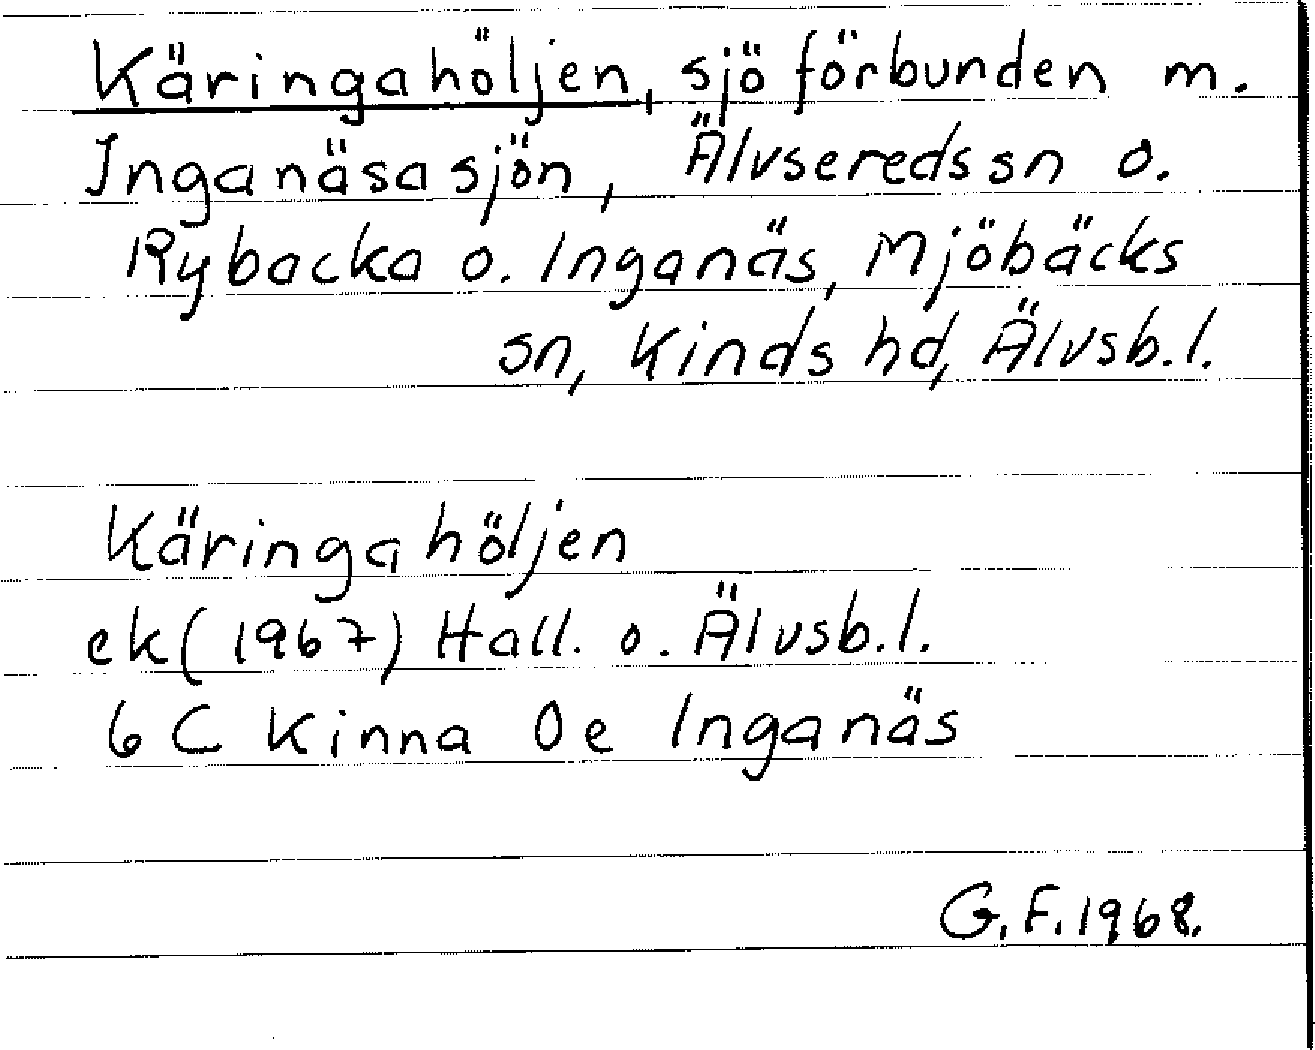 Käringahöljen, sjö förbunden m.
Inganäsasjön, Älvsereds sn o.
Rybacka o. Inganäs, Mjöbäcks
sn, Kinds hd, Älvsb.l.
Käringahöljen
ek (1967) Hall. o. Älvsb.l.
6 C Kinna 0e Inganäs
G.F. 1968.